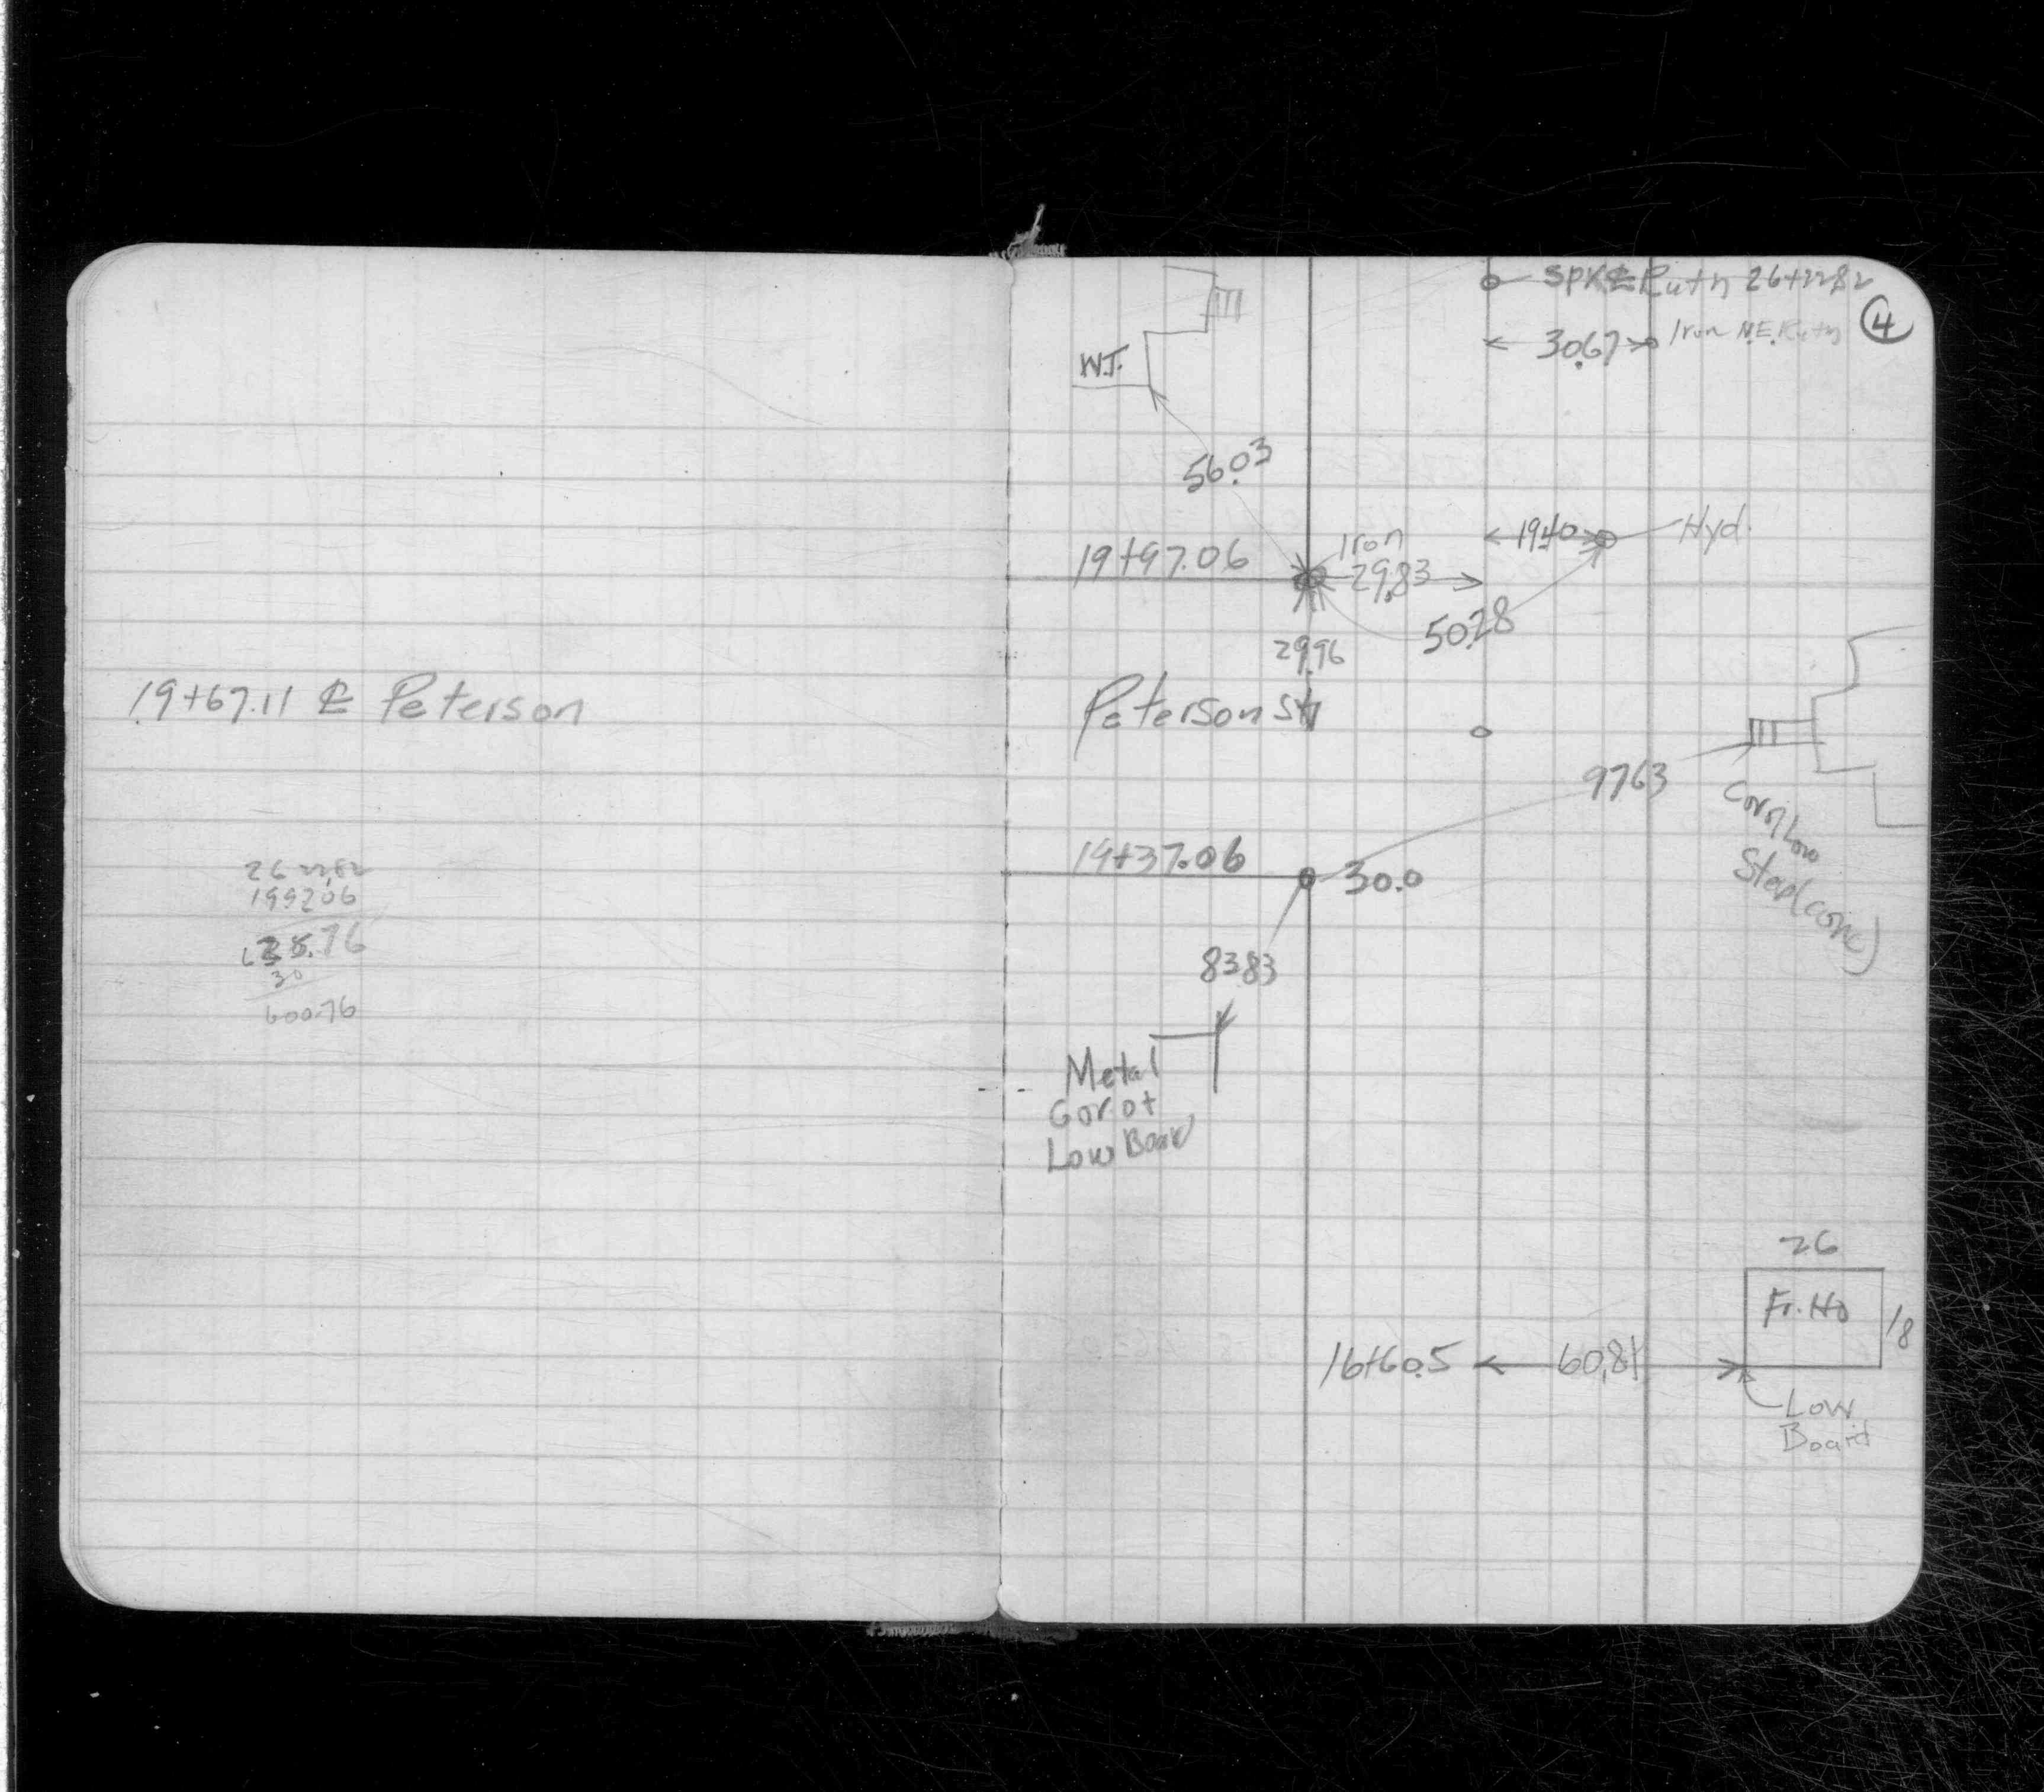 19+67.11 ℄ Peterson
26 22.82
199206
30
600.76
SPK ℄ Ruth 26+22.82
4
30.67
Iron N.E. Ruth
W.T.
56.03
19.40
Hyd.
Iron
19+97.06
29.83
50.28
29.96
Peterson St
97.63
Corn Low
Step (conc)
19+37.06
30.0
83.83
Metal
Gar ot
Low Board
26
Fr. Ho
18
16+60.5
60.81
Low
Board